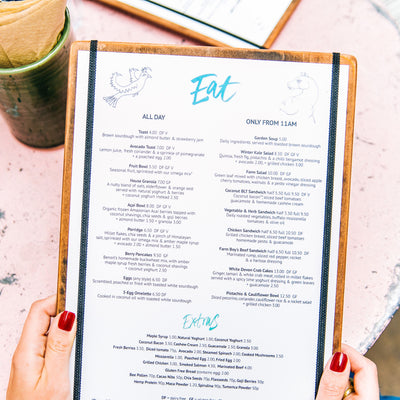 Eat
ALL DAY
Toast 4.00 DF V
Brown sourdough with almond butter & strawberry jam
Avocado Toast 5.00 DF V
Lemon juice, fresh coriander & a sprinkle of pomegranate
+ a poached egg 2.00
Fruit Bowl 5.50 DF GF V
Seasonal fruit, sprinkled with our "omega mix"
House Granola
A nutty blend of oats, elderflower & orange served with natural yoghurt & berries
coconut yoghurt instead 2.50
Açai Bowl 8.00 DF GF V
Organic frozen Amazonian Acai berries topped with
coconut shavings, chia seeds & goji berries
+ almond butter 1.50 + granola 3.00
Porridge 6.50 DF V
Millet flakes, chia seeds & a pinch of Himalayan
salt, sprinkled with our omega mix & amber maple syrup
+ avocado 2.00 + almond butter 1.50
Berry Pancakes 9.50 GF
fresh berries & coconut shavings
+ coconut yoghurt 2.50
Eggs
Scrambled, poached or fried with toasted white sourdough
3 Egg Omelette 6.50 DF
Cooked in coconut oil with toasted white sourdough
ONLY FROM 11AM
Garden Soup 5.00
Daily ingredients, served with toasted brown sourdough
Winter Kale Salad 8.50 DF GF V
Quinoa, fresh fig, pistachio & a chilli tangerine dressing
+ avocado 2.00 + grilled chicken 3.50
Farm Salad 10.00 DF GF
Green leaf mixed with chicken breast, avocado, sliced apple
cherry tomatoes, walnuts & a pesto vinaigrette dressing
Coconut BLT Sandwich half 5.50 full 9.50
Coconut bacon, sliced beef tomatoes
guacamole & homemade cashew cream
Vegetable & Herb Sandwich half 5.50 full 9.50
Daily roasted vegetables, buffalo mozzarella
tomatoes & olive oil
Chicken Sandwich half 6.50 full 9.50
Grilled chicken breast, sliced beef tomatoes
homemade pesto & guacamole
Farm Boy's Beef Sandwich half 6.50 full 9.50
Marinated rump, sliced red pepper, rocket
& a herbed mayonnaise
White Devon Crab Cakes 13.00 DF GF
Ginger, tamari & white crab meat, rolled in millet flakes
served with a spicy lime yoghurt dressing & green leaves
+ guacamole 2.50
Pistachio & Cauliflower Bowl 12.50 DF GF
Sliced pecorino, coriander, cauliflower rice & a rocket salad
+ grilled chicken 3.50
Extras
Maple Syrup 1.00, Natural Yoghurt 1.50
Coconut Bacon 3.50, Cashew Cream 2.50, Guacamole 2.50, Granola 3.00
Fresh Berries 3.50, Sliced tomato 70p, Avocado 2.00, Steamed Spinach 2.00, Cooked Mushrooms 3.50
Mozzarella 3.00, Poached Egg 2.00, Fried Egg 2.00
Grilled Chicken 3.50, Smoked Salmon 4.00, Marinated Beef 4.00
Gluten Free Bread
Bee Pollen 70p, Coconut Shavings 50p, Chia Seeds 70p, Flaxseeds 70p, Goji Berries 90p
Hemp Protein 90p, Maca Powder 1.20, Spirulina 90p, Turmerica Powder 50p
DF = dairy free